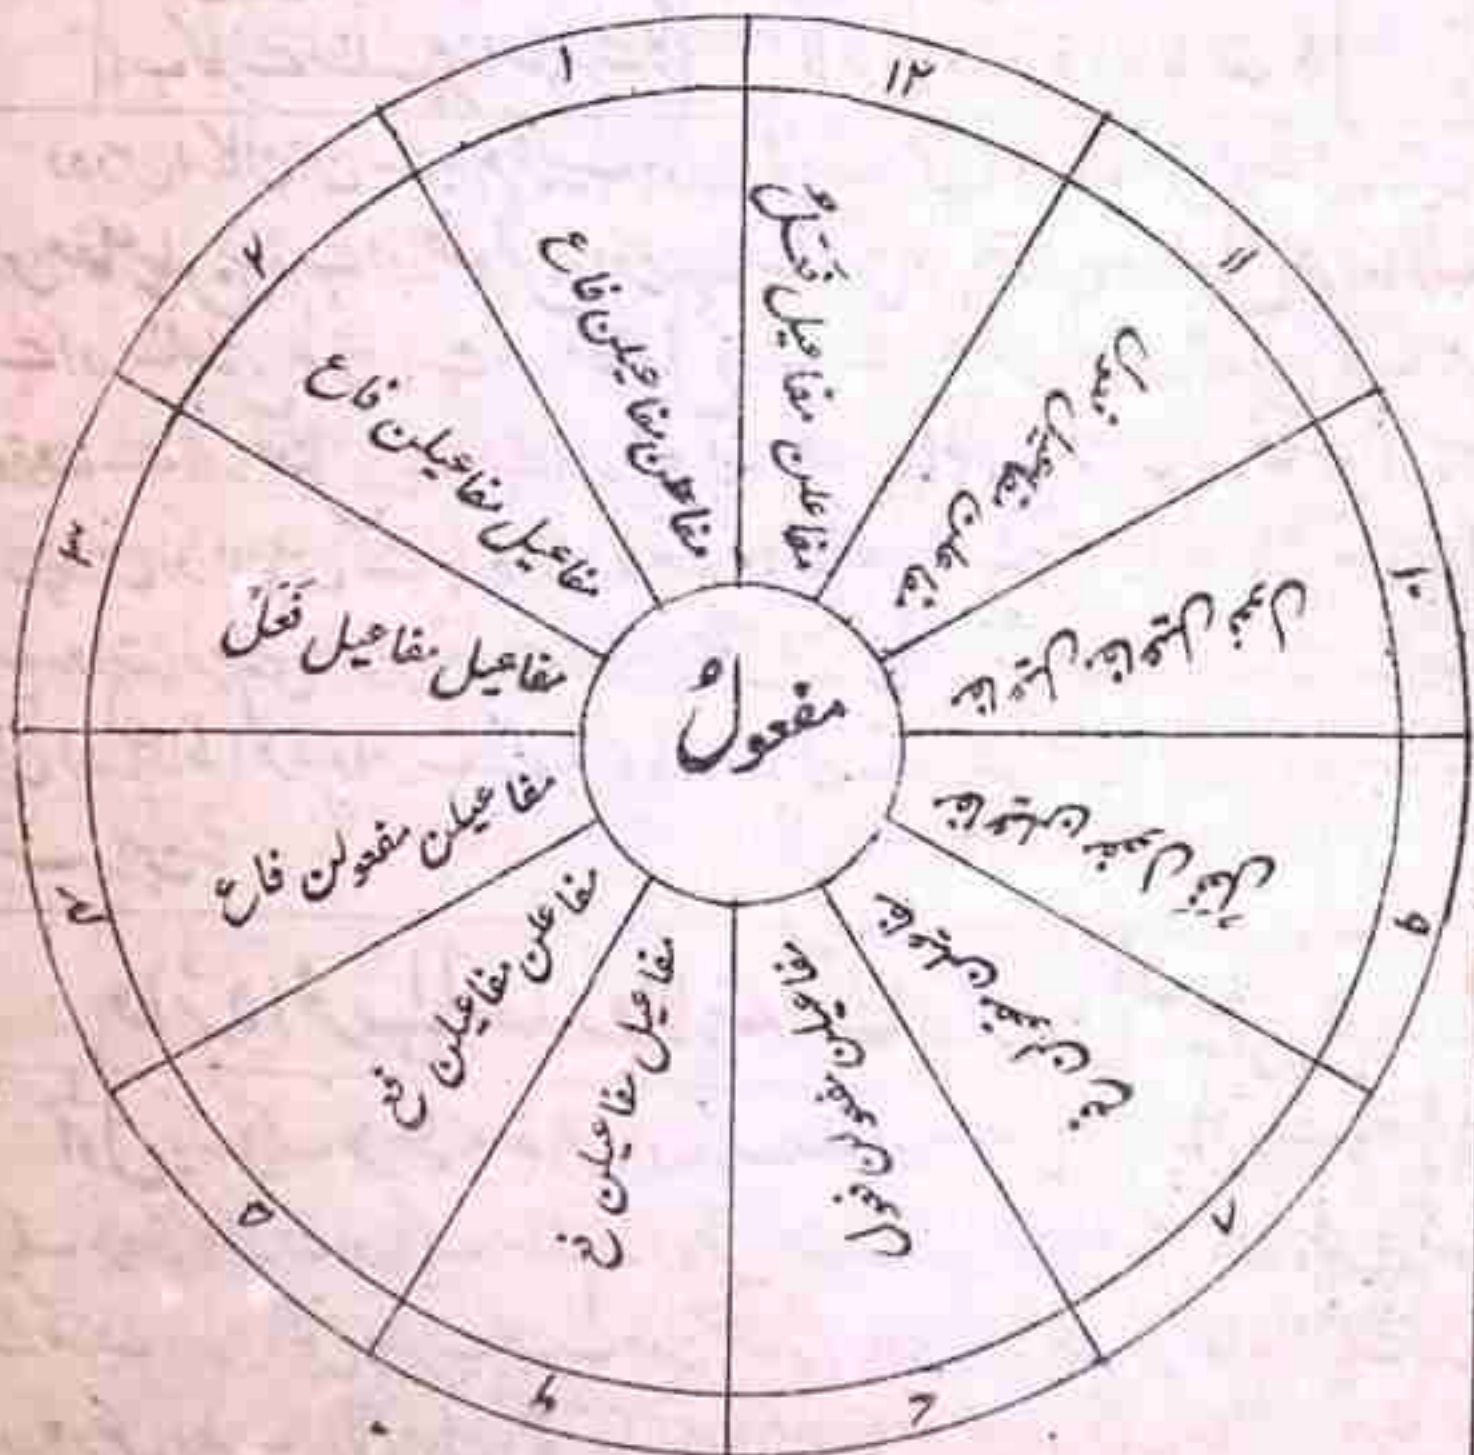 مفعولُ
۱
مفاعلن مفاعیلن فاع
۲
مفاعیل مفاعیلن فاع
۳
مفاعیل مفاعیل فَعَلْ
۴
مفاعیلن مفعولن فاع
۵
مفاعلن مفاعیلن فع
۶
مفاعیل مفاعیلن فع
۷
مفاعیلن فعول
۸
مفاعیلن مفعولن فع
۹
مفاعیلن مفعول فَعَلْ
۱۰
مفاعیل مفاعیل فعول
۱۱
مفاعلن مفاعیل فعول
۱۲
مفاعلن مفاعیل فَعَلْ